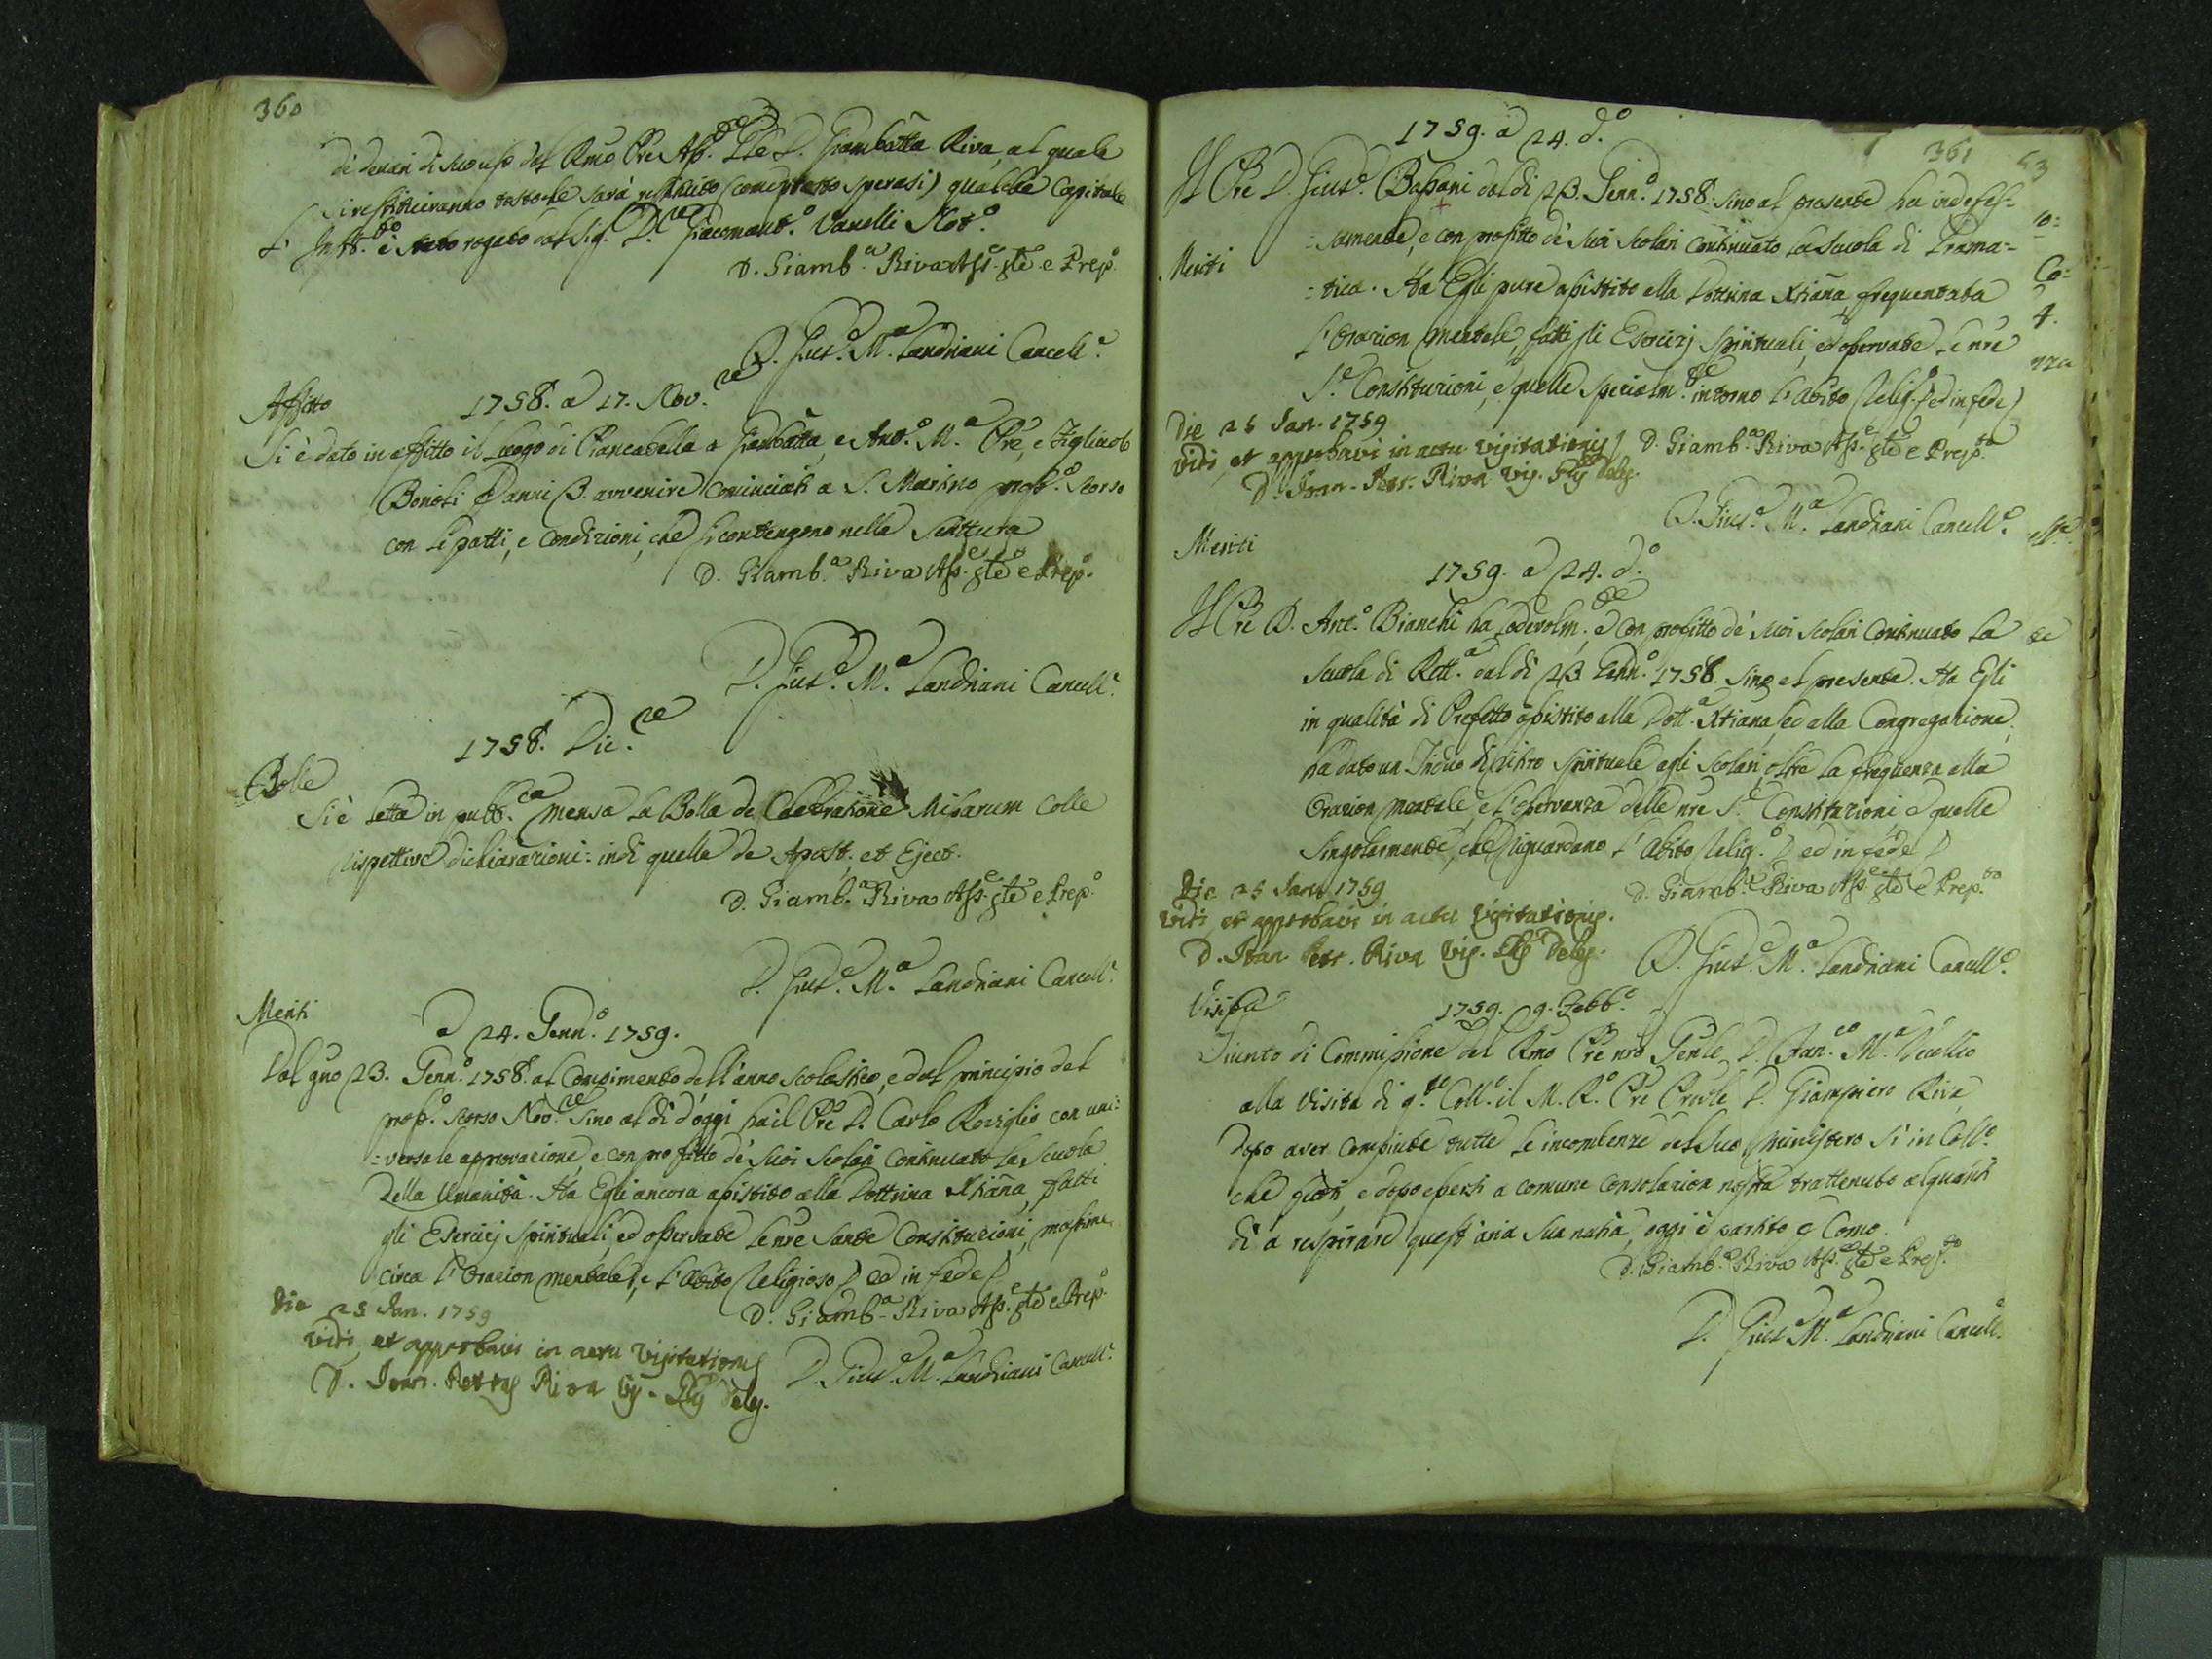 360
di denari di suo uso dal Rmo Pre Ass.te Gle D. Giambatta Riva, al quale
si restituiranno tostoche sarà restituito (come presto sperasi) qualche Capitale
L' Instr.to è stato rogato dal Sig. D.re Giacomant.o Vanelli Not.o
D. Giamb.a Riva Ass.e Gle e Prep.o
D. Gius.e M.a Landriani Cancell.e
Affitto
1758. a 17. Nov.re
Si è dato in affitto il Luogo di Biancadella a Giambatta, e Ant.o M.a Pre, e Figliuolo
Bonoli P anni 3. avvenire cominciati a S. Martino pross.o scorso
con li patti, e condizioni, che si contengono nella Scrittura
D. Giamb.a Riva Ass.e Gle e Prep.o
D. Gius.e M.a Landriani Cancell.e
1758. Dic.re
Bolle
Si è letta in pubb.ca mensa la Bolla de Celebratione Missarum colle
rispettive dichiarazioni: indi quella de Apost. et Eject.
D. Giamb.a Riva Ass.e Gle e Prep.o
D. Gius.e M.a Landriani Cancell.e
Meriti
a 24. Genn.o 1759.
Dal gno 23. Genn.o 1758. al Compimento dell'anno scolastico, e dal principio del
pross.o scorso Nov.re sino al dì d'oggi ha il Pre D. Carlo Roviglio con uni=
=versale approvazione, e con profitto de' suoi Scolari continuato la Scuola
della Umanità. Ha Egli ancora assistito alla Dottrina Xtiana, fatti
gli Esercizj Spirituali, ed osservate le nre Sante Constituzioni, massime
circa l'Orazion mentale, e l'Abito Religioso) ed in fede)
D. Giamb.a Riva Ass.e Gle e Prep.o
Die 25 Jan. 1759
Vidi, et approbavi in actu Visitationis
D. Joan. Petrus Riva Vis. Glis deleg.
D. Gius.e M.a Landriani Cancell.e
361
53
1759. a 24. d.o
Il Pre D. Gius.e Bassani dal dì 23. Genn.o 1758. sino al presente ha indefes=
=samente, e con profitto de' suoi Scolari continuato la Scuola di Grama=
Meriti
=tica. Ha Egli pure assistito alla Dottrina Xtiana, frequentata
l'Orazion mentale, fatti gli Esercizj Spirituali, ed osservate le nre
S.e Constituzioni, e quelle specialm.te intorno l'Abito Relig.o) ed in fede)
Die 25 Jan. 1759
Vidi, et approbavi in actu Visitationis
D. Giamb.a Riva Ass.e Gle e Prep.to
D. Joan. Petr. Riva Vis. Glis deleg.
D. Gius.e M.a Landriani Cancell.e
Meriti
1759. a 24. d.o
Il Pre D. Ant.o Bianchi ha lodevolm.te e con profitto de' suoi Scolari continuato la
Scuola di Rett.a dal dì 23. Genn.o 1758. sino al presente. Ha Egli
in qualità di Prefetto assistito alla Dott.a Xtiana, ed alla Congregazione,
ha dato un Triduo di ritiro spirituale agli Scolari, oltre la frequenza alla
Orazion mentale, e l'osservanza delle nre S.e Constituzioni e quelle
singolarmente, che riguardano l'Abito Relig.o) ed in fede)
Die 25 Jan. 1759
D. Giamb.a Riva Ass.e Gle e Prep.to
Vidi, et approbavi in actu Visitationis.
D. Joan. Petr. Riva Vis. Glis deleg.
D. Gius.e M.a Landriani Cancell.e
Visita
1759. 9. Febb.o
Giunto di Commissione del Rmo Pre nro Genle D. Fran.co M.a Vecellio
alla Visita di q.to Coll.o il M. R.o Pre Provle D. Giampiero Riva,
dopo aver compiute tutte le incombenze del suo ministero sì in Coll.o
che fuori, e dopo essersi a comune consolazion nostra trattenuto alquanti
dì a respirare quest'aria sua natia, oggi è partito p Como.
D. Giamb.a Riva Ass.e Gle e Prep.to
D. Gius.e M.a Landriani Cancell.e